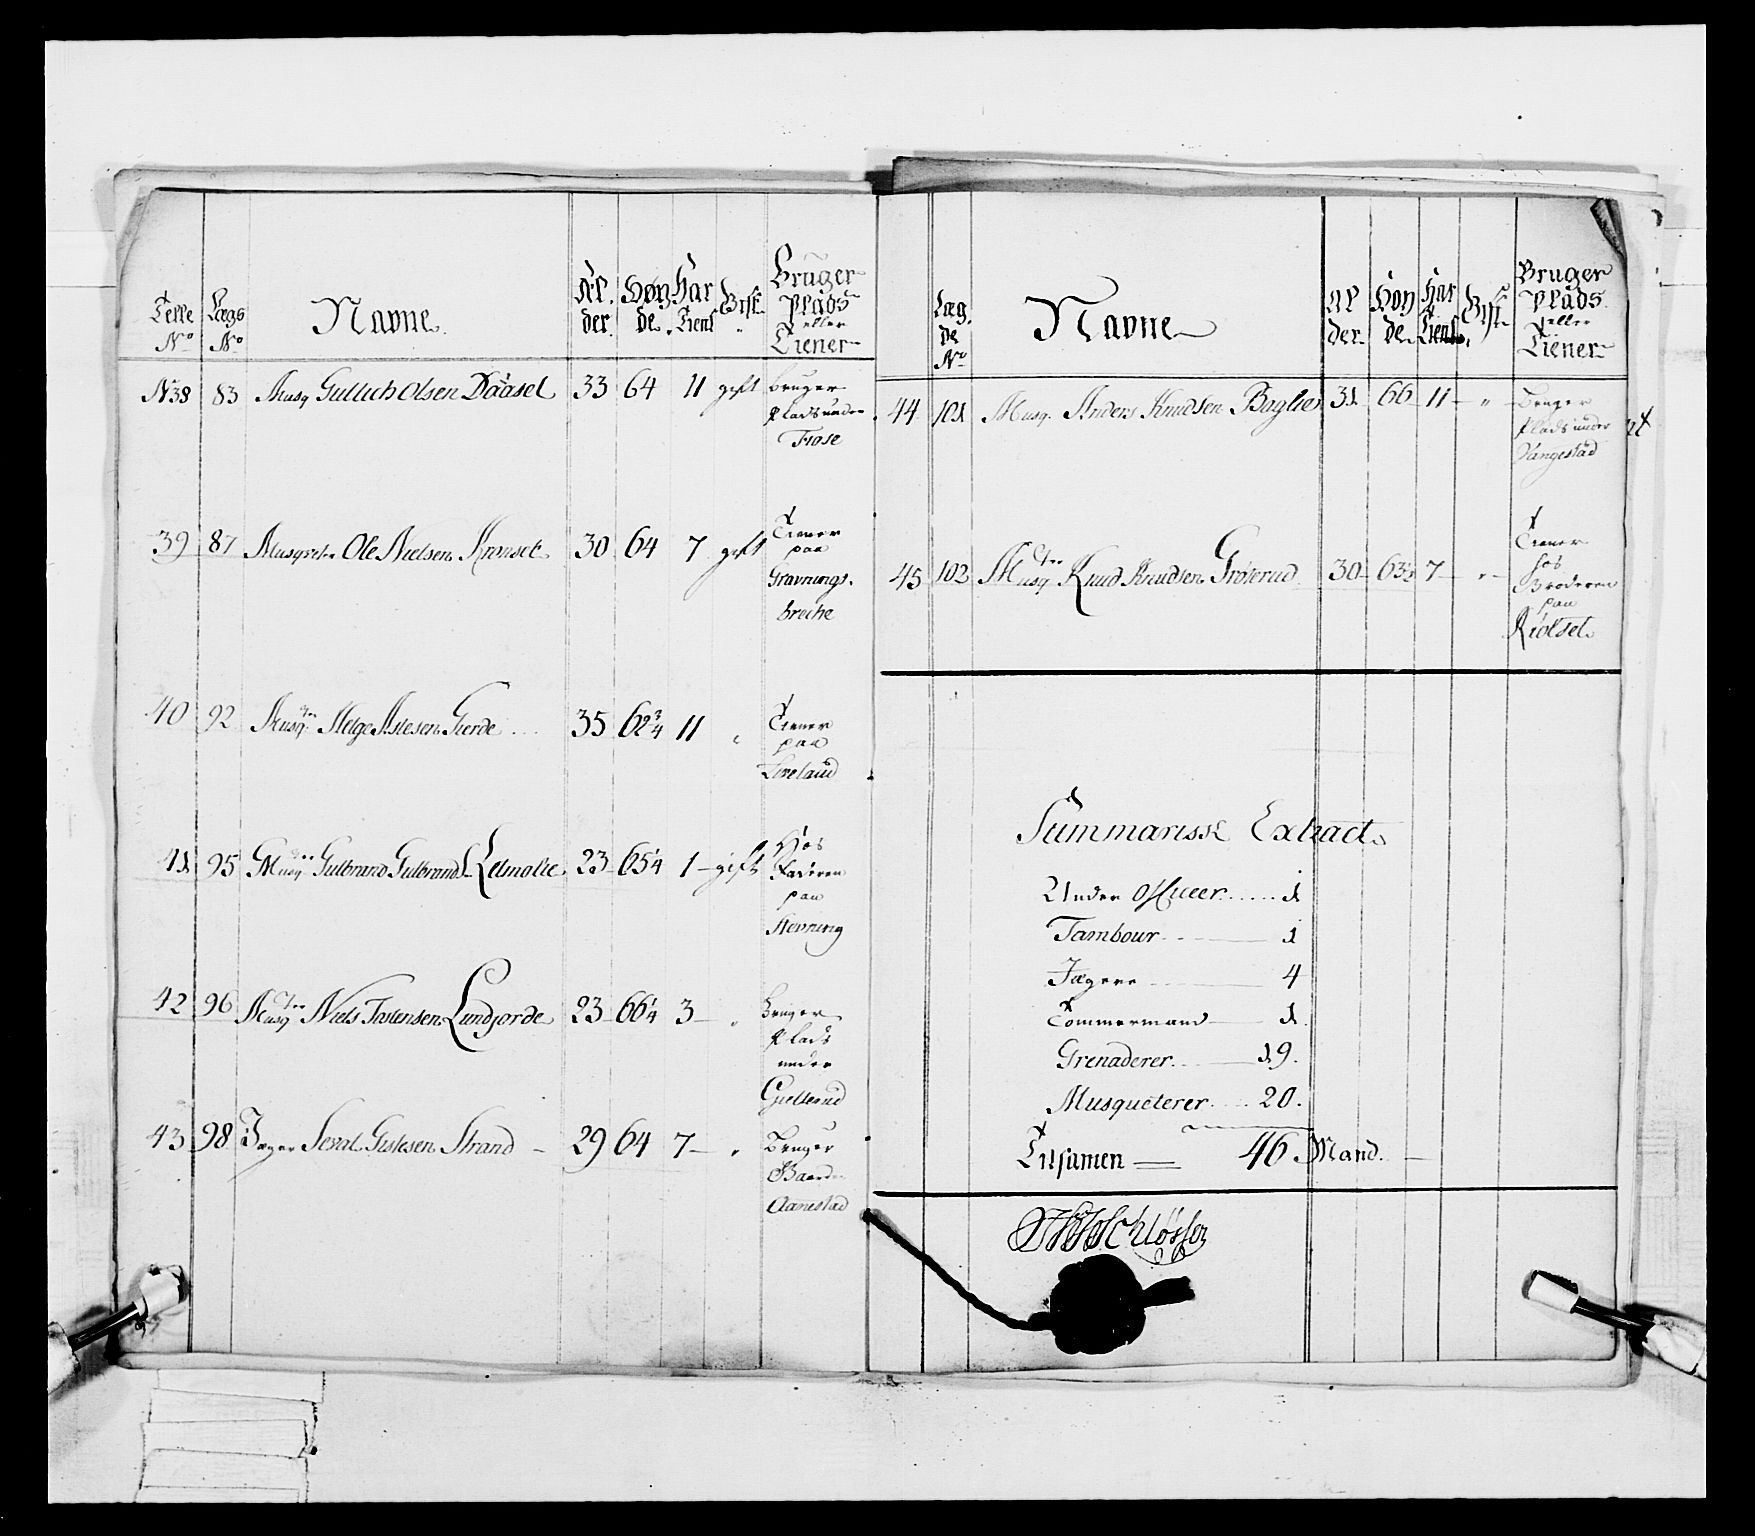 Telle No Lægs No Navne. Al- der. Høy de. Har Tient Gift. Bruger Plads eller Tiener
No 38 83 Musq Gullich Olsen Daasel 33 64 11 gift Bruger
Plads under
Frøse
39 87 Musqveter Ole Nielsen Kronset 30 64 7 gift Tiener
paa
Gravnings-
breche
40 92 Musqter Helge Aslesen Gierde 35 62 3/4 11 " Tiener
paa
41 95 Musqter Gulbrand Gulbrands. 23 65 1/4 1 gift Hos
Faderen
paa
42 96 Musqter Niels Tostensen Lundjorde 23 66 1/4 3 " Bruger
Plads
under
Gjellerud
43 98 Jæger Sevat Gislesen Strand 29 64 7 " Bruger
Aanestad
Læg- de No Navne Al der. Høy de. Har Tient. Gift Bruger Plads. eller Tiener
44 101 Musq. Anders Knudsen Baglie 31 66 11 " Bruger
Plads under
Vangestad
45 102 Musqter Knud Knudsen Grøterud 30 63 1/2 7 " Tiener
hos
Broderen
paa
Summarisk Extract.
Under Officeer 1
Tambour 1
Jægere 4
Tømmermand 1
Grenaderer 19.
Musqueterer 20.
Tilsamen 46 Mand.
Schlösser